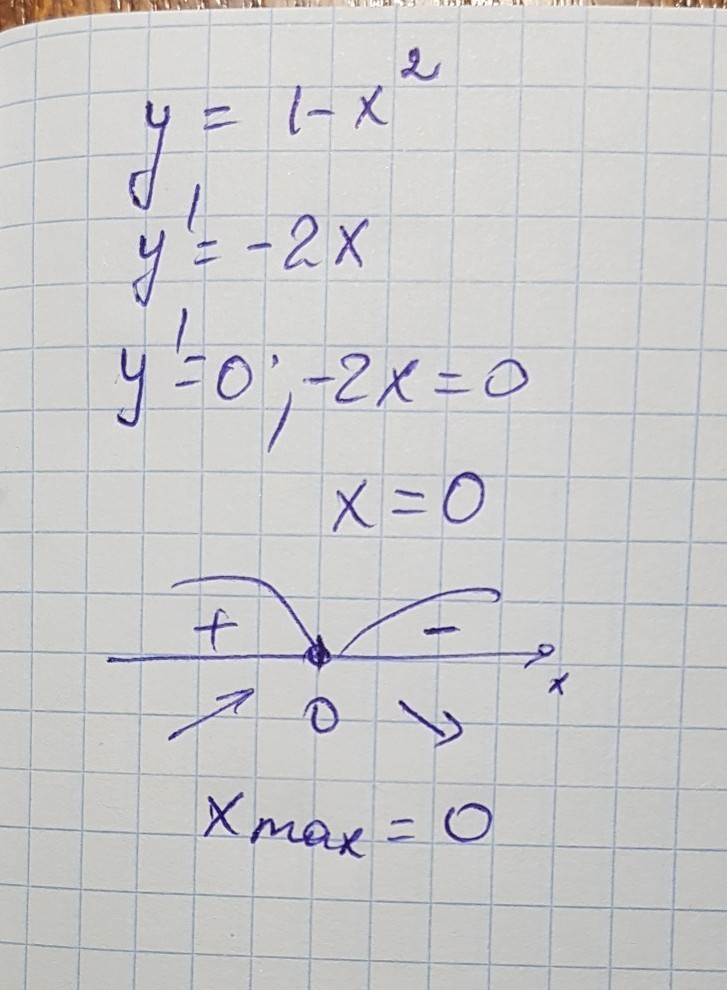 y = 1-x²
y' = -2x
y' = 0; -2x = 0
x = 0
+ -
0 x
x max = 0